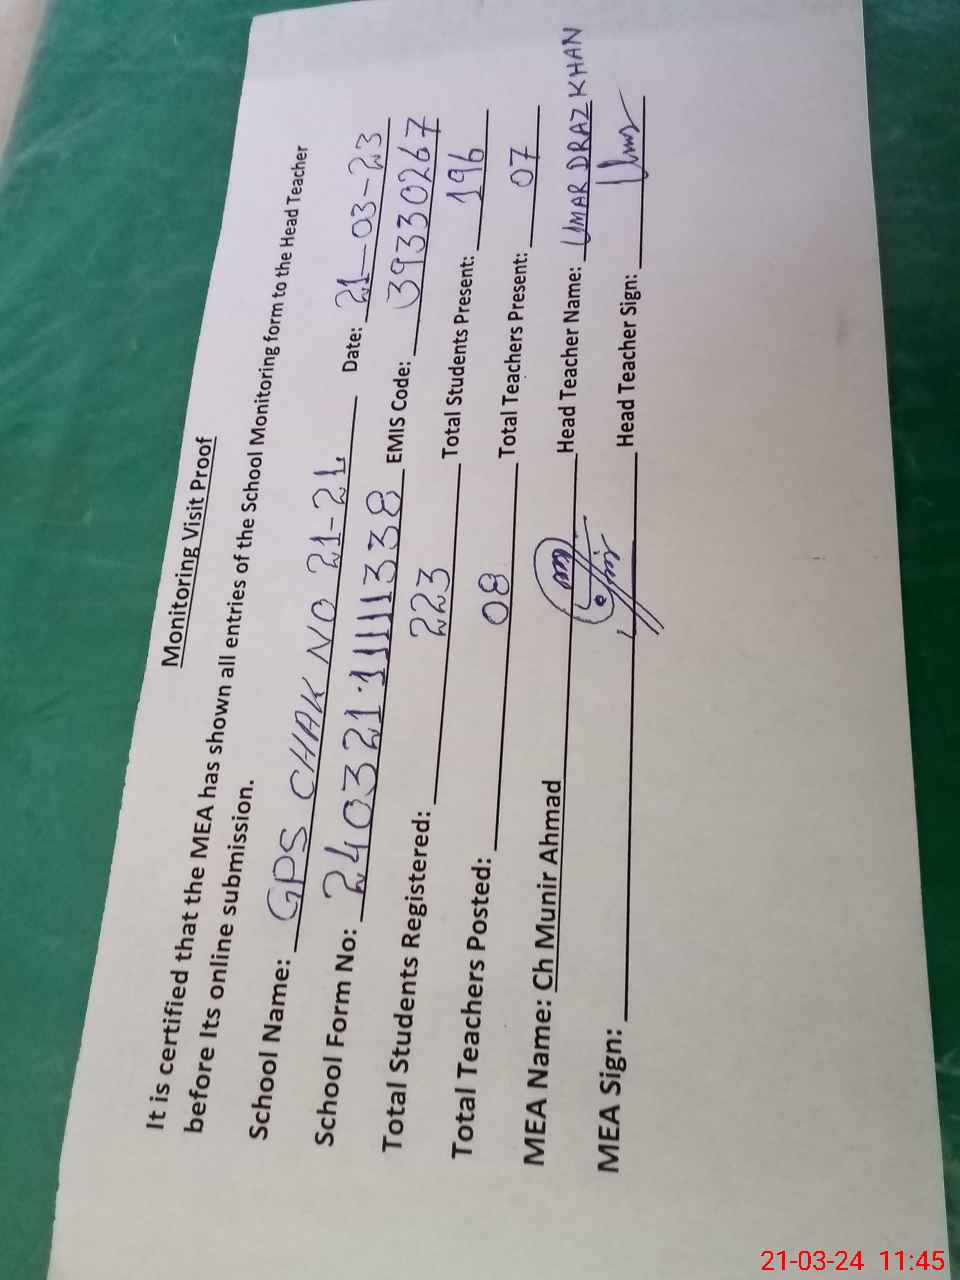 Monitoring Visit Proof
It is certified that the MEA has shown all entries of the School Monitoring form to the Head Teacher
before Its online submission.
School Name: GPS CHAK NO 21-2L Date: 21-03-23
School Form No: 240321·11111338 EMIS Code: 39330267
Total Students Registered: 223 Total Students Present: 196
Total Teachers Posted: 08 Total Teachers Present: 07
MEA Name: Ch Munir Ahmad Head Teacher Name: UMAR DRAZ KHAN
MEA Sign: Head Teacher Sign: Umar
21-03-24 11:45